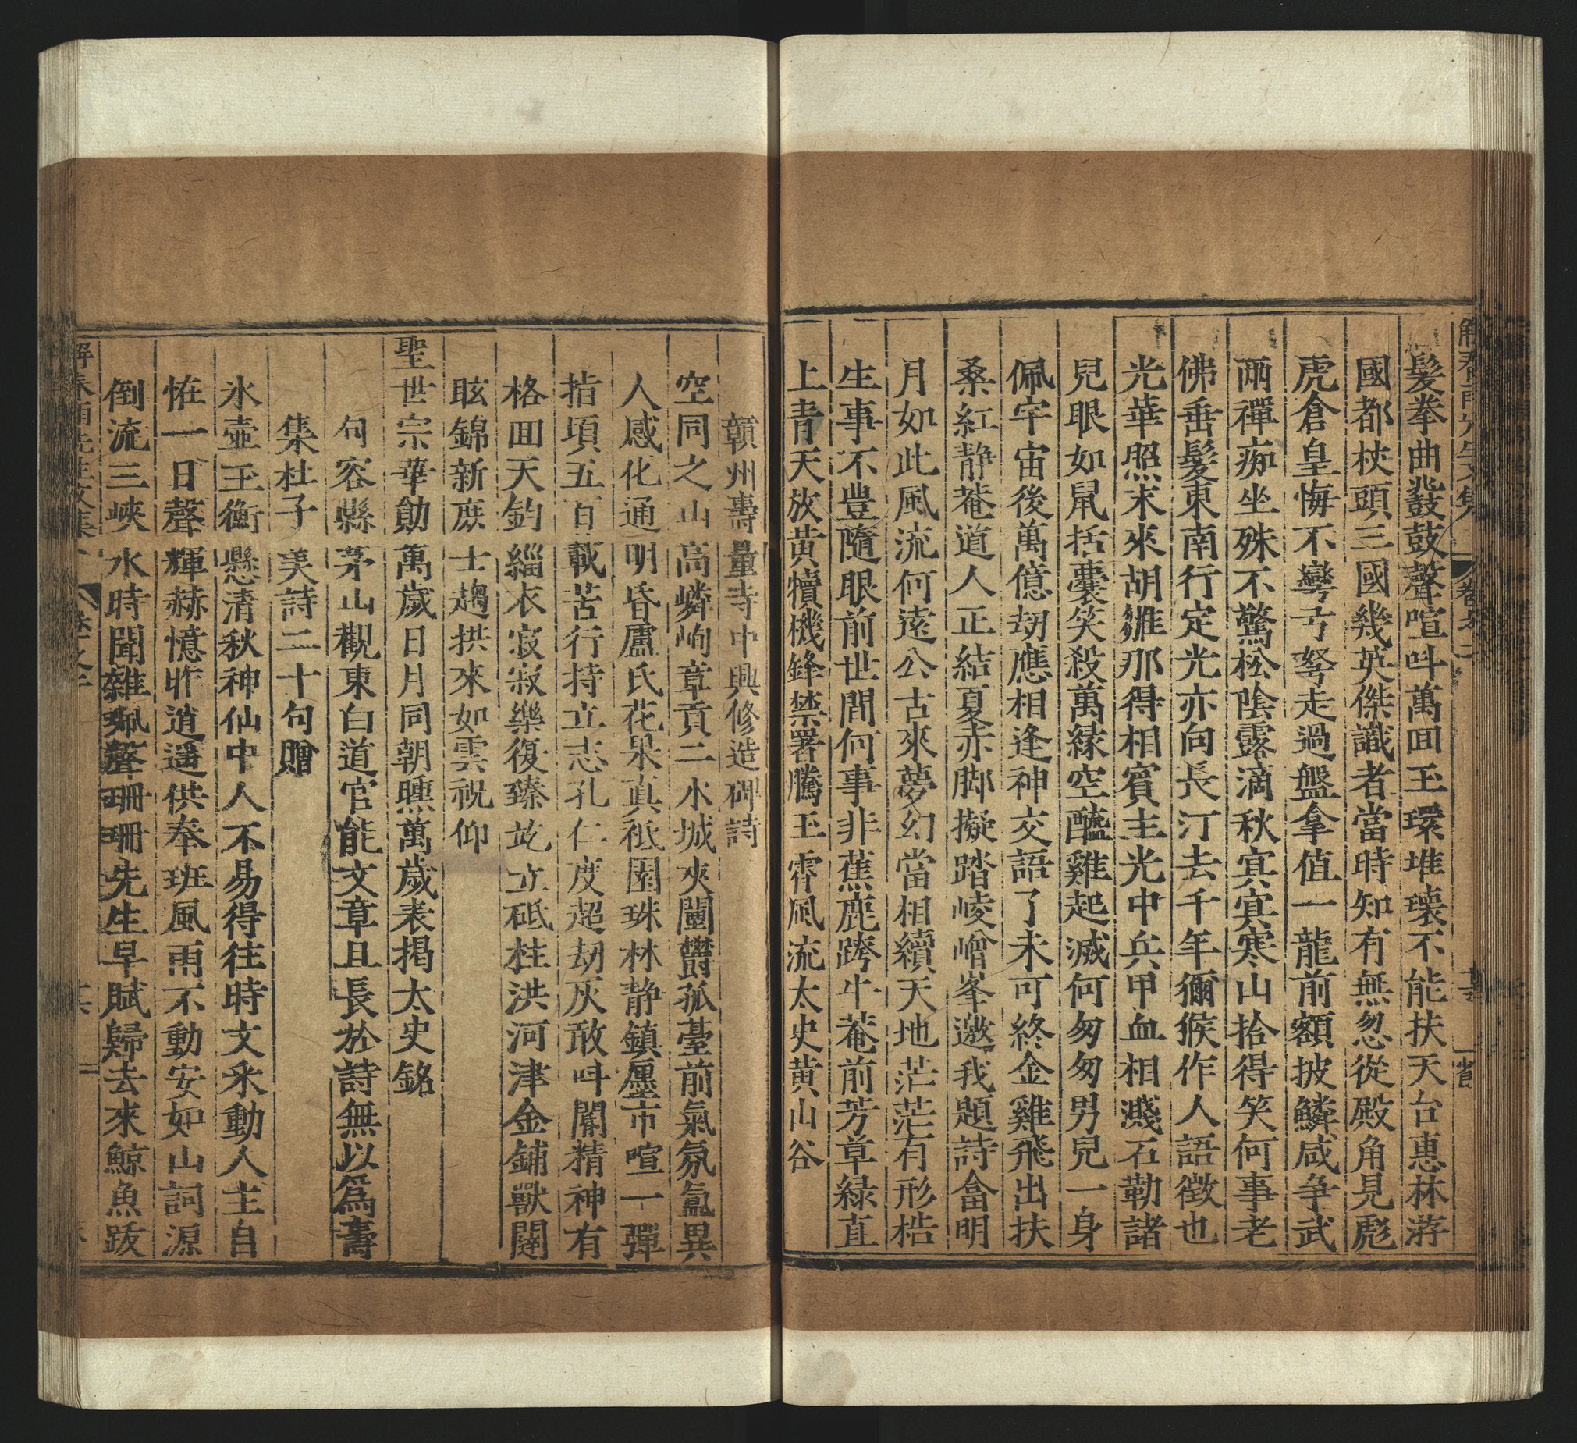 髮拳曲鼗鼓聲喧叫萬回玉環堆壞不能扶天台惠林游
國都杖頭三國幾英傑識者當時知有無忽從殿角見彪
虎倉皇悔不彎弓弩走過盤拿值一龍前額披鱗咸爭武
兩禪痴坐殊不驚松陰露滴秋寅寅寒山拾得笑何事老
佛垂髮東南行定光亦向長汀去千年獼猴作人語徵也
光華照求來胡雛那得相賓主光中兵甲血相濺石勒諸
兒眼如鼠括囊笑殺萬緣空醯雞起滅何匆匆男兒一身
佩宇宙後萬億劫應相逢神交語了未可終金雞飛出扶
桑紅静菴道人正結夏赤脚擬踏崚嶒峯邀我題詩畣明
月如此風流何遠公古來夢幻當相續天地茫茫有形梏
生事不豊隨眼前世間何事非蕉鹿跨牛菴前芳草緑直
上青天放黄犢機鋒禁署騰玉霄風流太史黄山谷
贛州壽量寺中興修造碑詩
空同之山高嶙峋章貢二水城夾闉欝孤臺前氣氛氲異
人感化通明昏廬氏花果真祗園珠林静鎮㕓市喧一彈
指頃五百載苦行持立志孔仁度超劫灰敢叫閽精神有
格回天鈞緇衣寂寂樂復臻屹立砥柱洪河津金鋪獸闥
眩錦新庶士趨拱來如雲祝仰
聖世宗華勛萬歲日月同朝曛萬歲表揭太史銘
句容縣茅山觀東白道官能文章且長於詩無以爲壽
集杜子美詩二十句贈
氷壷玉衡懸清秋神仙中人不易得往時文釆動人主自
恠一日聲輝赫憶昨逍遥供奉班風雨不動安如山詞源
倒流三峽水時聞雜珮聲珊珊先生早賦歸去來鯨魚跋